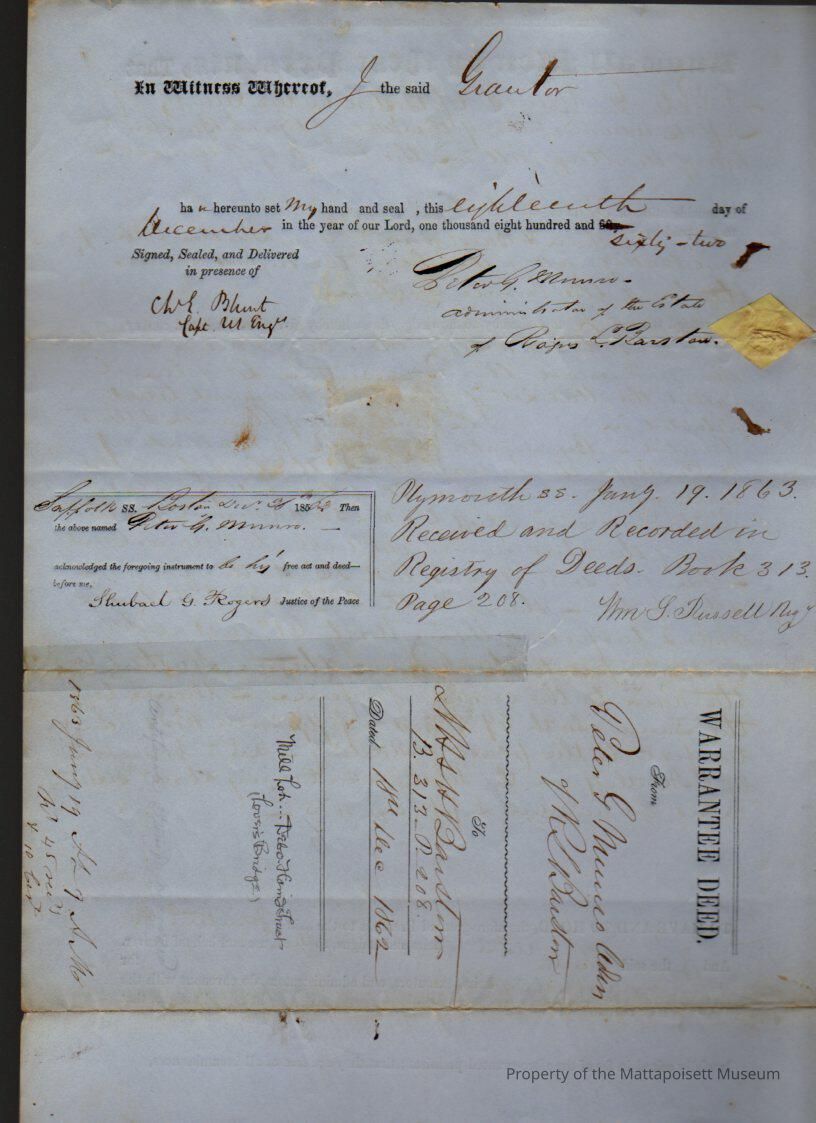 In Witness Whereof, I the said Grantor
ha ve hereunto set My hand and seal , this eighteenth day of
December in the year of our Lord, one thousand eight hundred and fifty
sixty-two
Signed, Sealed, and Delivered
in presence of
Peter G. Munro.
administrator of the Estate
of L. Barstow.
Chs E. Blunt
Capt. US Engrs
Suffolk ss. Boston Dec. 1862 Then
the above named Peter G. Munro.
acknowledged the foregoing instrument to be his free act and deed—
before me,
Shubael G. Rogers Justice of the Peace
Plymouth ss. Jany. 19. 1863.
Received and Recorded in
Registry of Deeds. Book 313.
Page 208.
Wm S. Russell Regr
WARRANTEE DEED.
From
Peter G Munro Adm
Barstow
To
Barstow
B. 313. P. 208.
Dated 18th Dec 1862
Mill Lot
1863 Jany 19 7 A.M.
Property of the Mattapoisett Museum